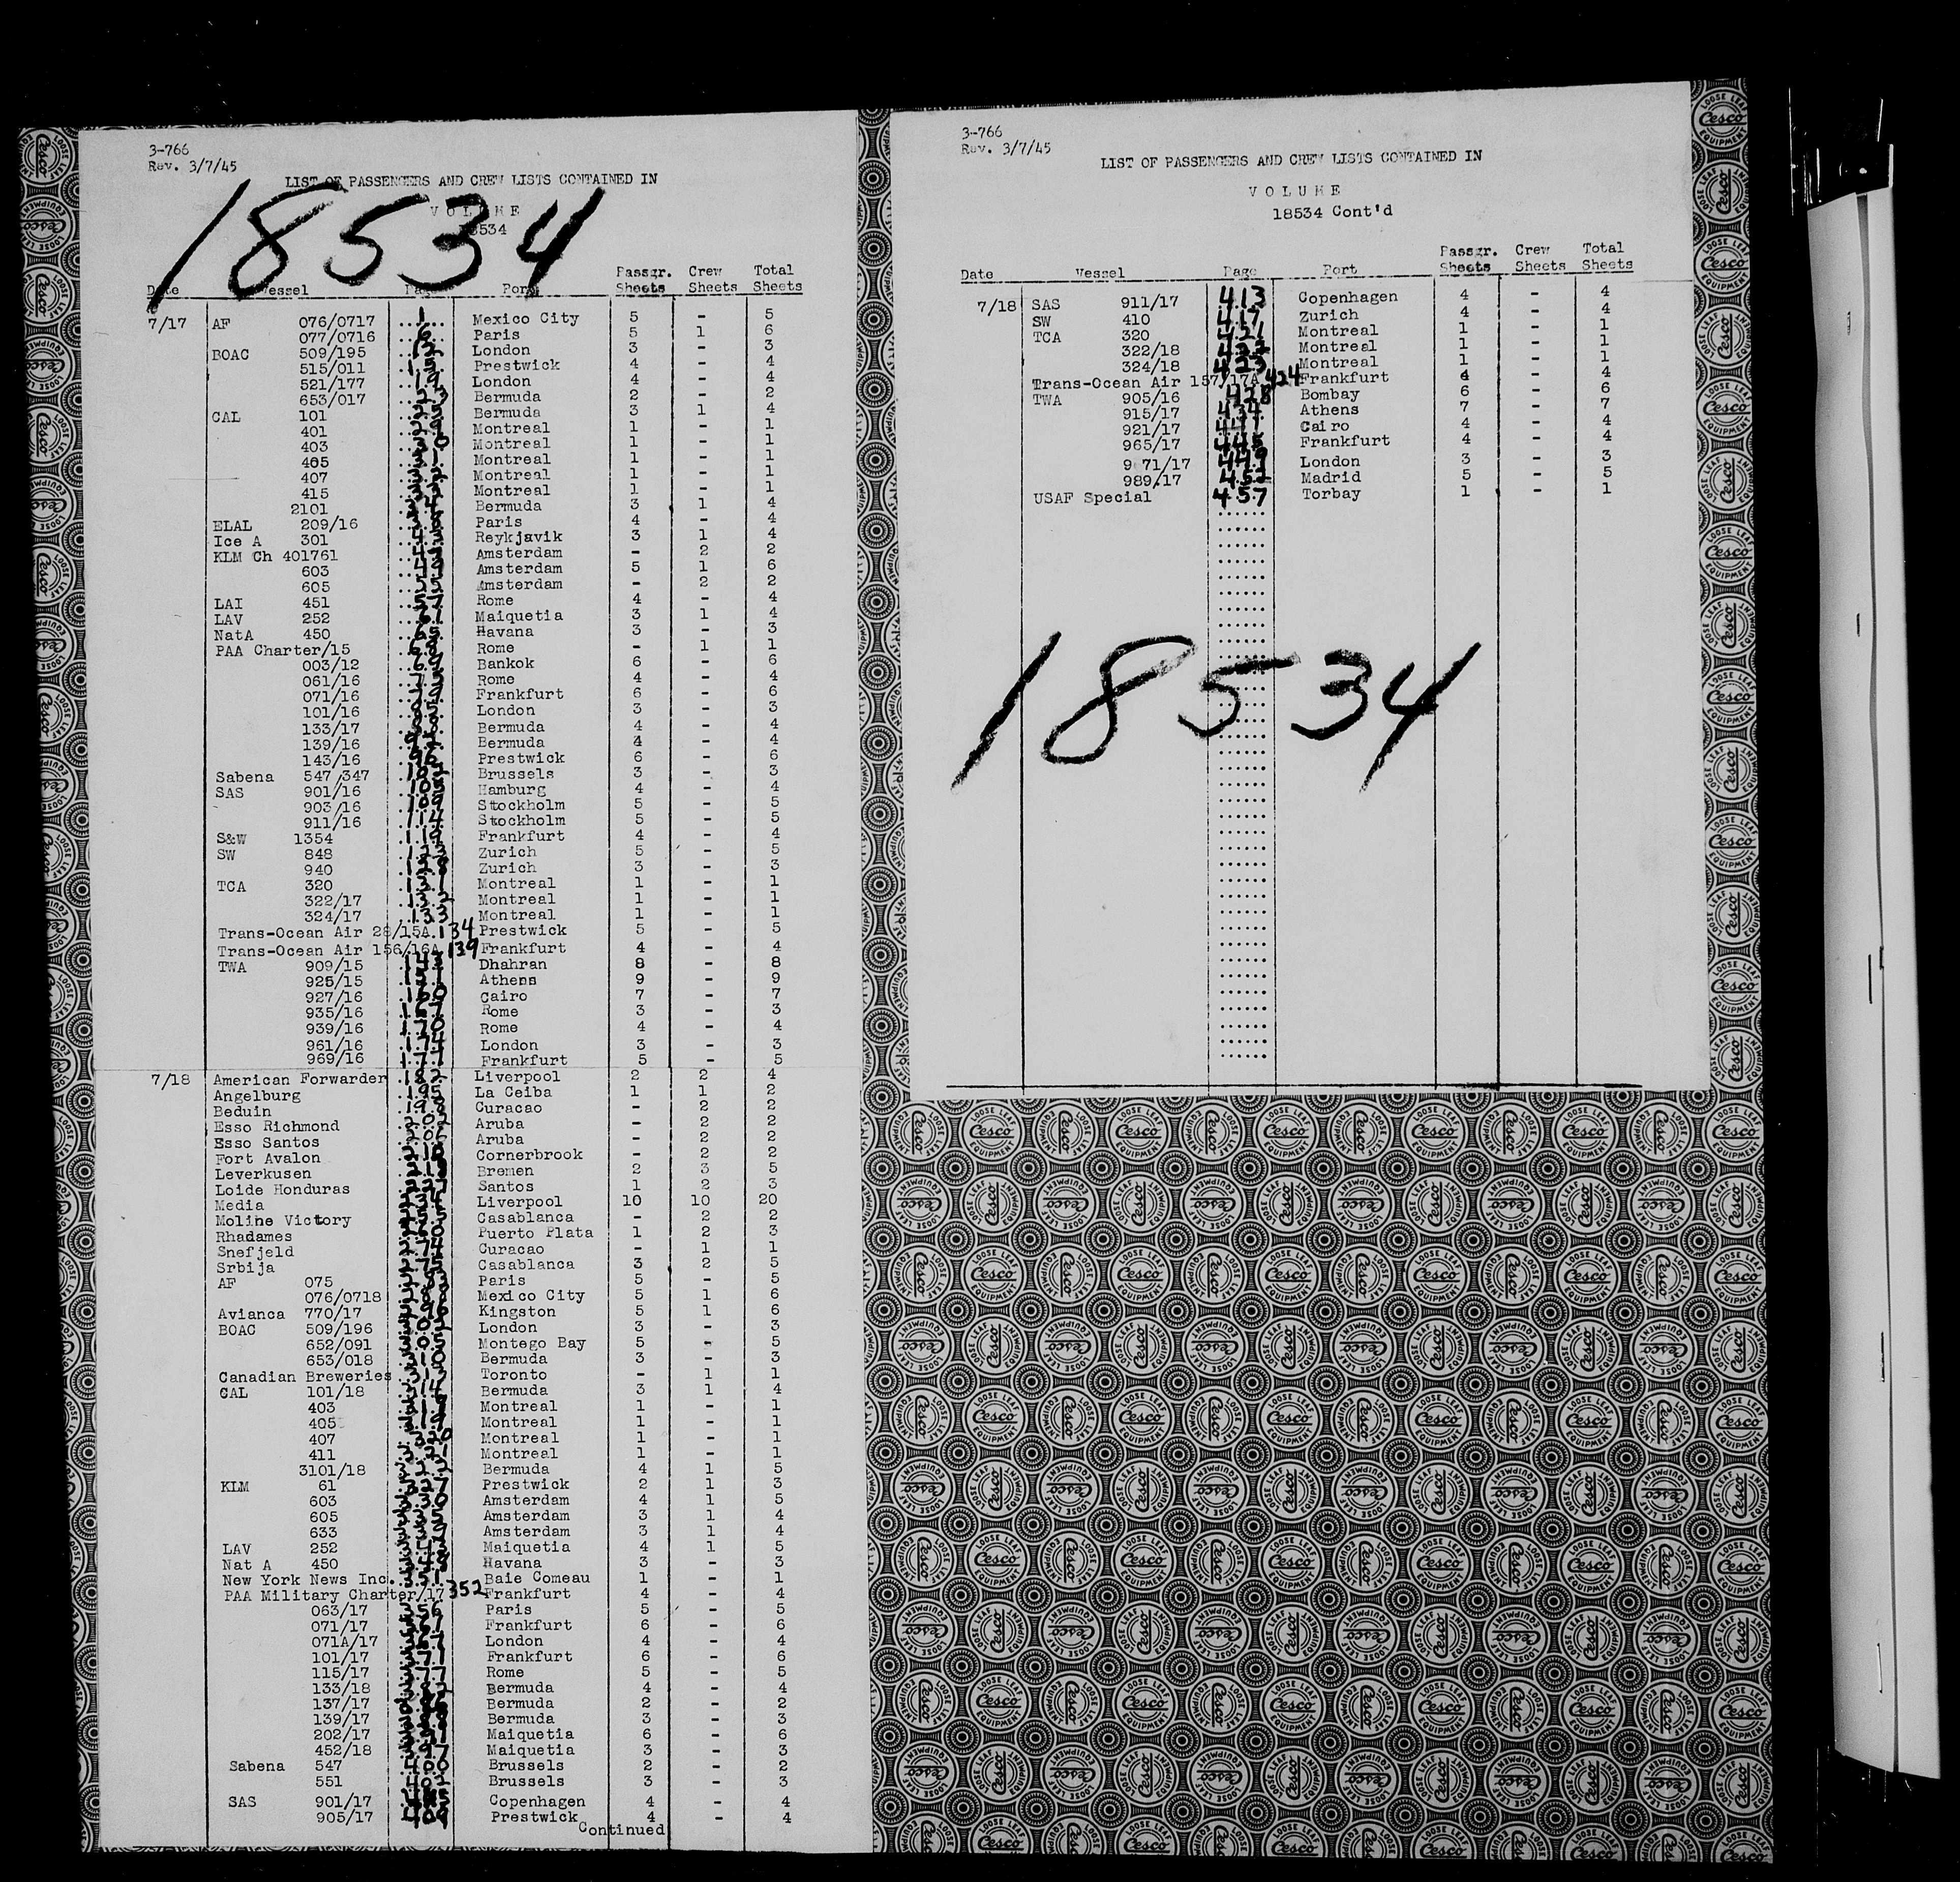 3-766
Rev. 3/7/45
LIST OF PASSENGERS AND CREW LISTS CONTAINED IN
VOLUME
18534
18534
Date Vessel Page Port Passgr. Sheets Crew Sheets Total Sheets
7/17 AF 076/0717 1 Mexico City 5 - 5
077/0716 6 Paris 5 1 6
BOAC 509/195 12 London 3 - 3
515/011 15 Prestwick 4 - 4
521/177 19 London 4 - 4
653/017 23 Bermuda 2 - 2
CAL 101 Bermuda 3 1 4
401 Montreal 1 - 1
403 30 Montreal 1 - 1
405 Montreal 1 - 1
407 Montreal 1 - 1
415 Montreal 1 - 1
2101 Bermuda 3 1 4
ELAL 209/16 Paris 4 - 4
Ice A 301 Reykjavik 3 1 4
KLM Ch 401761 Amsterdam - 2 2
603 Amsterdam 5 1 6
605 Amsterdam - 2 2
LAI 451 57 Rome 4 - 4
LAV 252 61 Maiquetia 3 1 4
NatA 450 65 Havana 3 - 3
PAA Charter/15 68 Rome - 1 1
003/12 69 Bankok 6 - 6
061/16 Rome 4 - 4
071/16 Frankfurt 6 - 6
101/16 London 3 - 3
133/17 Bermuda 4 - 4
139/16 Bermuda 4 - 4
143/16 96 Prestwick 6 - 6
Sabena 547/347 102 Brussels 3 - 3
SAS 901/16 105 Hamburg 4 - 4
903/16 109 Stockholm 5 - 5
911/16 114 Stockholm 5 - 5
S&W 1354 119 Frankfurt 4 - 4
SW 848 123 Zurich 5 - 5
940 128 Zurich 3 - 3
TCA 320 131 Montreal 1 - 1
322/17 132 Montreal 1 - 1
324/17 133 Montreal 1 - 1
Trans-Ocean Air 28/15A 134 Prestwick 5 - 5
Trans-Ocean Air 156/16A 139 Frankfurt 4 - 4
TWA 909/15 143 Dhahran 8 - 8
925/15 151 Athens 9 - 9
927/16 160 Cairo 7 - 7
935/16 167 Rome 3 - 3
939/16 170 Rome 4 - 4
961/16 174 London 3 - 3
969/16 177 Frankfurt 5 - 5
7/18 American Forwarder 182 Liverpool 2 2 4
Angelburg 195 La Ceiba 1 1 2
Beduin 198 Curacao - 2 2
Esso Richmond Aruba - 2 2
Esso Santos Aruba - 2 2
Fort Avalon Cornerbrook - 2 2
Leverkusen Bremen 2 3 5
Loide Honduras Santos 1 2 3
Media Liverpool 10 10 20
Moline Victory Casablanca - 2 2
Rhadames Puerto Plata 1 2 3
Snefjeld Curacao - 1 1
Srbija Casablanca 3 2 5
AF 075 Paris 5 - 5
076/0718 Mexico City 5 1 6
Avianca 770/17 Kingston 5 1 6
BOAC 509/196 London 3 - 3
652/091 305 Montego Bay 5 - 5
653/018 310 Bermuda 3 - 3
Canadian Breweries 313 Toronto - 1 1
CAL 101/18 314 Bermuda 3 1 4
403 318 Montreal 1 - 1
405 319 Montreal 1 - 1
407 320 Montreal 1 - 1
411 321 Montreal 1 - 1
3101/18 322 Bermuda 4 1 5
KLM 61 327 Prestwick 2 1 3
603 330 Amsterdam 4 1 5
605 335 Amsterdam 3 1 4
633 339 Amsterdam 3 1 4
LAV 252 343 Maiquetia 4 1 5
Nat A 450 348 Havana 3 - 3
New York News Inc. 351 Baie Comeau 1 - 1
PAA Military Charter/17 352 Frankfurt 4 - 4
063/17 356 Paris 5 - 5
071/17 361 Frankfurt 6 - 6
071A/17 367 London 4 - 4
101/17 371 Frankfurt 6 - 6
115/17 377 Rome 5 - 5
133/18 382 Bermuda 4 - 4
137/17 386 Bermuda 2 - 2
139/17 388 Bermuda 3 - 3
202/17 391 Maiquetia 6 - 6
452/18 397 Maiquetia 3 - 3
Sabena 547 400 Brussels 2 - 2
551 402 Brussels 3 - 3
SAS 901/17 405 Copenhagen 4 - 4
905/17 409 Prestwick 4 - 4
Continued
3-766
Rev. 3/7/45
LIST OF PASSENGERS AND CREW LISTS CONTAINED IN
VOLUME
18534 Cont'd
Date Vessel Page Port Passgr. Sheets Crew Sheets Total Sheets
7/18 SAS 911/17 413 Copenhagen 4 - 4
SW 410 417 Zurich 4 - 4
TCA 320 421 Montreal 1 - 1
322/18 422 Montreal 1 - 1
324/18 423 Montreal 1 - 1
Trans-Ocean Air 157/17A 424 Frankfurt 4 - 4
TWA 905/16 428 Bombay 6 - 6
915/17 434 Athens 7 - 7
921/17 441 Cairo 4 - 4
965/17 445 Frankfurt 4 - 4
9 71/17 449 London 3 - 3
989/17 452 Madrid 5 - 5
USAF Special 457 Torbay 1 - 1
18534
Cesco
LOOSE LEAF EQUIPMENT